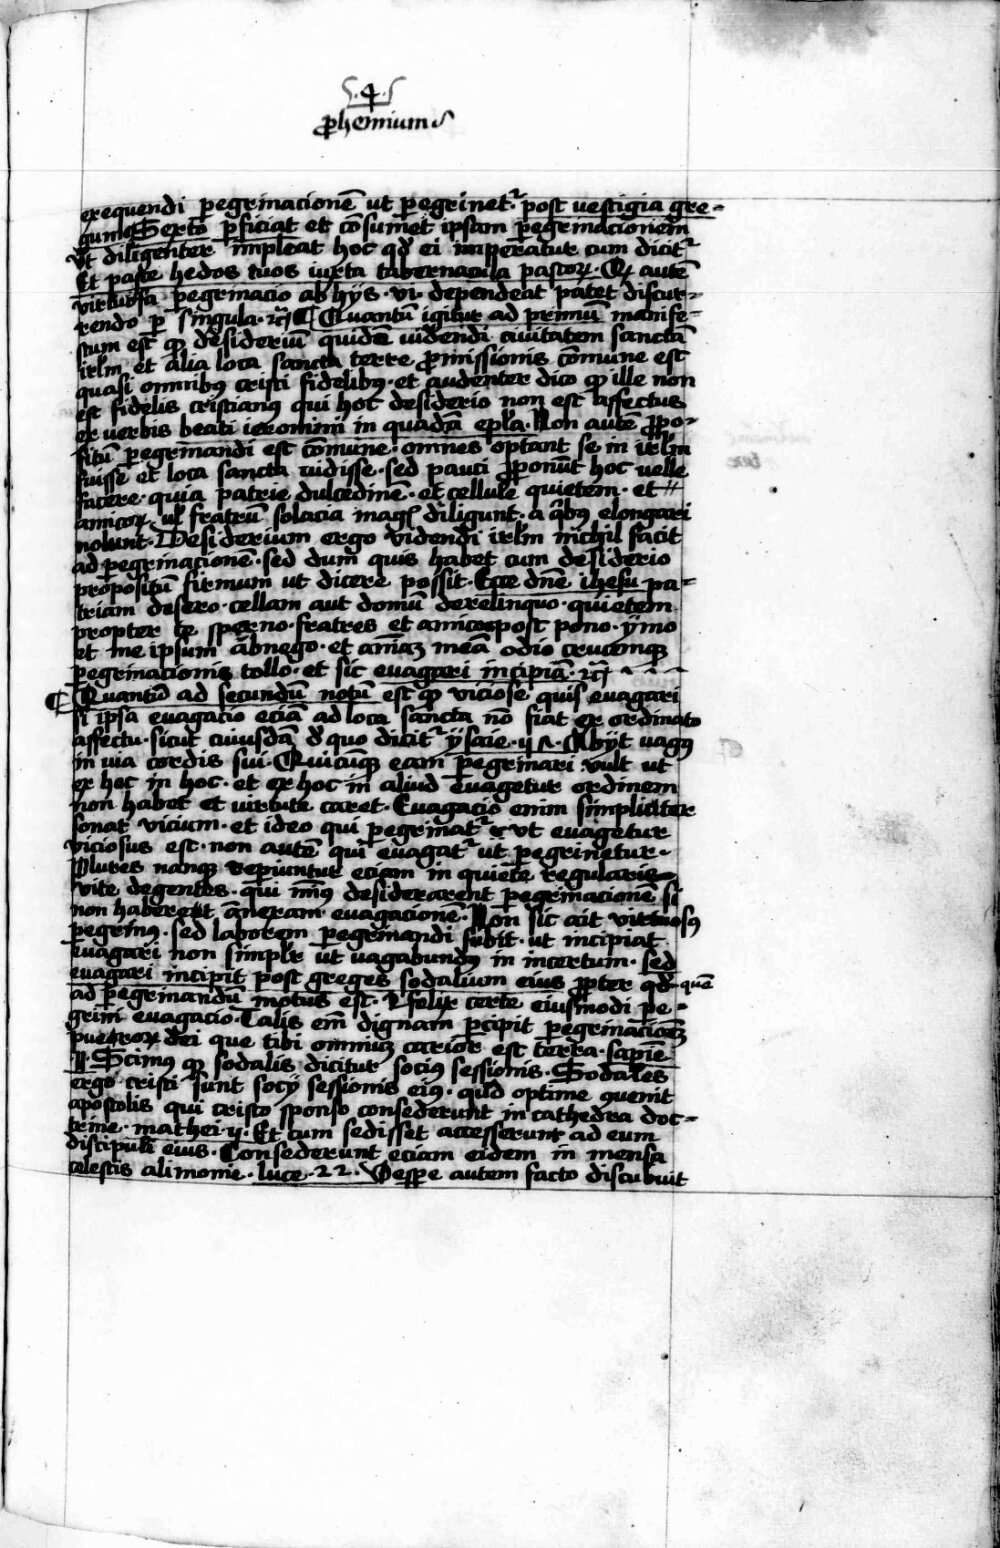 .4.
ꝓhemium
exequendi ꝑegrinacionē ut ꝑegrinetᷣ post vestigia gre-
gum Sexto ꝑficiat et cōsumet ipsam ꝑegrinacionem
Ut diligenter impleat hoc qḋ ei imperatur cum dicitᷣ
Et pasce hedos tuos iuxta tabernacula pastoꝝ. Qꝫ autē
virtuosa ꝑegrinacio ab hys .vi. dependeat patet discur-
rendo ꝑ singula. ⁊c̄ ¶ Quantū igitur ad primū manife-
stum est ꝙ desideriū quidē uidendi ciuitatem sanctā
irl̄m et alia loca sancta terre ꝓmissionis cōmune est
quasi omnibꝰ cristi fidelibꝰ. et audenter dico ꝙ ille non
est fidelis cristianꝰ qui hoc desiderio non est affectus
ex verbis beati ieronimi in quadā epl̄a. Non autē ꝓpo-
situ ꝑegrinandi est cōmune. omnes optant se in irl̄m
fuisse et loca sancta uidisse. sed pauci ꝓponūt hoc uelle
facere. quia patrie dulcedinē. et cellule quietem. et
amicoꝝ. ul̄ fratrū solacia magꝭ diligunt. a qͥbꝰ elongari
nolunt. Desiderium ergo videndi irl̄m nichil facit
ad ꝑegrinacionē. sed dum quis habet cum desiderio
propositū firmum ut dicere possit. Ecce dn̄e ihesu pa-
triam desero. cellam aut domū derelinquo. quietem
propter te sperno. fratres et amicos post pono. ymo
et me ipsum abnego. et am̄aꝫ meā odio crucemqꝫ
ꝑegrinacionis tollo. et sic euagari incipiā. ⁊c̄
¶ Quantū ad secundū notū est ꝙ viciose quis euagari
si ipsa euagacio eciā ad loca sancta nō fiat ex ordinato
affectu. sicut cuiusdā de quo dicitᷣ ysaie. Abyt vagꝰ
in via cordis sui. Quicūqꝫ eam ꝑegrinari vult ut
ex hoc in hoc. et ex hoc in aliud euagetur ordinem
non habet et virtute caret. Euagacio enim simpliciter
sonat vicium. et ideo qui ꝑegrinatᷣ ut euagetur
viciosus est. non autē qui euagatᷣ ut ꝑegrinetur.
Plures nanqꝫ reperiuntur eciam in quiete regularis
vite degentes. qui minꝰ desiderarent ꝑegrinacionē si
non haberent annexam euagacionē. Non sic ait virtuosꝰ
ꝑegrinꝰ. sed laborem ꝑegrinandi subit. ut incipiat
euagari non simpl̄r ut vagabundꝰ in incertum. sed
euagari incipit post greges sodalium eius ꝓpter qḋ quē
ad ꝑegrinandū motus est. O felix certe eiusmodi pe-
grini euagacio. Talis em̄ dignam ꝑcipit ꝑegrinacioneꝫ
pueroꝝ dei que tibi omniuꝫ carior est terra. sapiē
Scimꝰ ꝙ sodalis dicitur sociꝰ sessionis. Sodales
ergo cristi sunt socy sessionis eiꝰ. quod optime quenit
apostolis qui cristo sponso consederunt in cathedra doc-
trine. mathei .v. Et cum sedisset accesserunt ad eum
discipuli eius. Consederunt eciam eidem in mensa
celestis alimonie. luce .22. Vespe autem facto discubuit